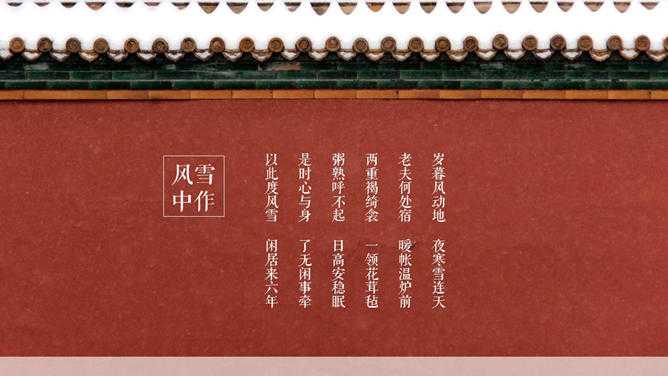 风雪
中作
岁暮风动地 夜寒雪连天
老夫何处宿 暖帐温炉前
两重褐绮衾 一领花茸毡
粥熟呼不起 日高安稳眠
是时心与身 了无闲事牵
以此度风雪 闲居来六年